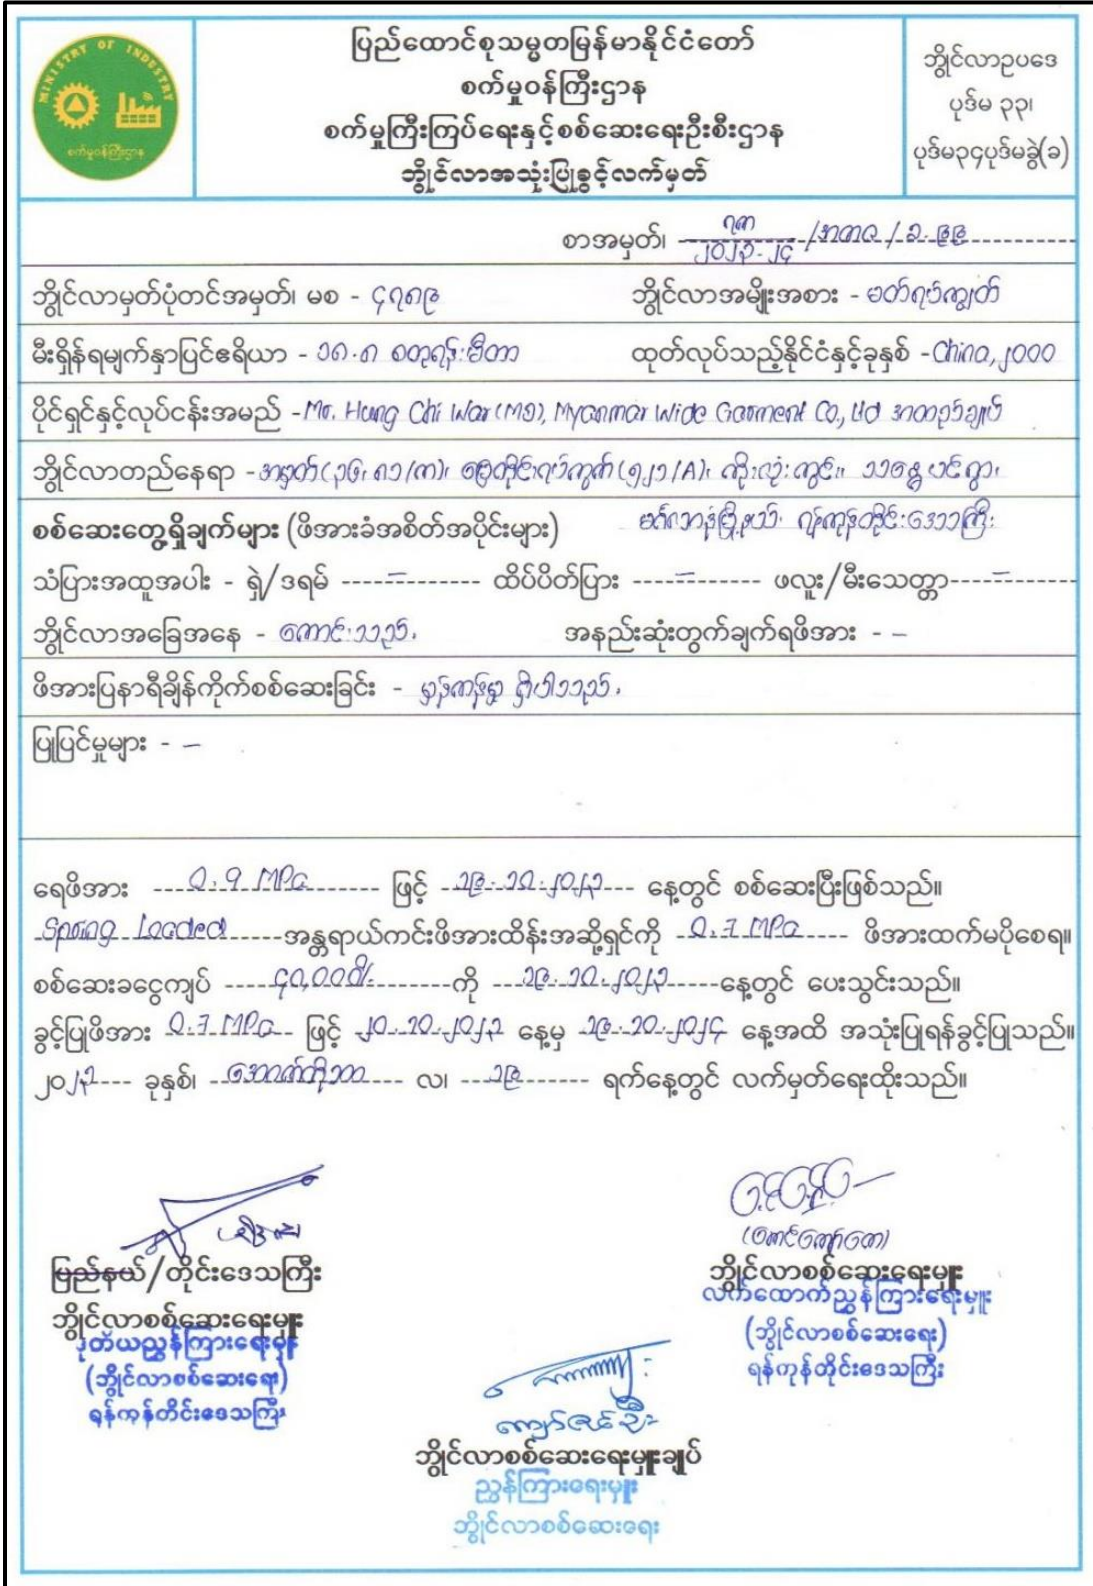 MINISTRY OF INDUSTRY
စက်မှုဝန်ကြီးဌာန
ပြည်ထောင်စုသမ္မတမြန်မာနိုင်ငံတော်
စက်မှုဝန်ကြီးဌာန
စက်မှုကြီးကြပ်ရေးနှင့်စစ်ဆေးရေးဦးစီးဌာန
ဘွိုင်လာအသုံးပြုခွင့်လက်မှတ်
ဘွိုင်လာဥပဒေ
ပုဒ်မ ၃၃၊
ပုဒ်မ၃၄ပုဒ်မခွဲ(ခ)
စာအမှတ်၊ ၂၀၂၃-၂၄
ဘွိုင်လာမှတ်ပုံတင်အမှတ်၊ မစ - ၄၇၈၉ ဘွိုင်လာအမျိုးအစား - မတ်ရပ်ကျွတ်
မီးရှိန်ရမျက်နှာပြင်ဧရိယာ - ၁၈.၈ စတုရန်းမီတာ ထုတ်လုပ်သည့်နိုင်ငံနှင့်ခုနှစ် - China, ၂၀၀၀
ပိုင်ရှင်နှင့်လုပ်ငန်းအမည် - Mr. Hung Chi War (MD), Myanmar Wide Garment Co., Ltd အထည်ချုပ်
ဘွိုင်လာတည်နေရာ - မြေတိုင်းရပ်ကွက်
စစ်ဆေးတွေ့ရှိချက်များ (ဖိအားခံအစိတ်အပိုင်းများ) မင်္ဂလာဒုံမြို့နယ်၊ ရန်ကုန်တိုင်းဒေသကြီး
သံပြားအထူအပါး - ရှဲ/ဒရမ် ---–--- ထိပ်ပိတ်ပြား ---–--- ဖလူး/မီးသေတ္တာ---–---
ဘွိုင်လာအခြေအနေ - ကောင်းသည်။ အနည်းဆုံးတွက်ချက်ရဖိအား - –
ဖိအားပြနာရီချိန်ကိုက်စစ်ဆေးခြင်း - မှန်ကန်မှု ရှိပါသည်။
ပြုပြင်မှုများ - –
ရေဖိအား ---0.9 MPa--- ဖြင့် -၁၉.၁၀.၂၀၂၃--- နေ့တွင် စစ်ဆေးပြီးဖြစ်သည်။
Spring Loaded---အန္တရာယ်ကင်းဖိအားထိန်းအဆို့ရှင်ကို -0.7 MPa--- ဖိအားထက်မပိုစေရ။
စစ်ဆေးခငွေကျပ် ---၄၀,၀၀၀/---ကို ---၁၉.၁၀.၂၀၂၃---နေ့တွင် ပေးသွင်းသည်။
ခွင့်ပြုဖိအား 0.7 MPa-- ဖြင့် -၂၀.၁၀.၂၀၂၃ နေ့မှ -၁၉.၁၀.၂၀၂၄ နေ့အထိ အသုံးပြုရန်ခွင့်ပြုသည်။
၂၀၂၃--- ခုနှစ်၊ --အောက်တိုဘာ--- လ၊ ---၁၉--- ရက်နေ့တွင် လက်မှတ်ရေးထိုးသည်။
(အောင်ကျော်ဇော)
ပြည်နယ်/တိုင်းဒေသကြီး
ဘွိုင်လာစစ်ဆေးရေးမှူး
ဘွိုင်လာစစ်ဆေးရေးမှူး
လက်ထောက်ညွှန်ကြားရေးမှူး
ဒုတိယညွှန်ကြားရေးမှူး
(ဘွိုင်လာစစ်ဆေးရေး)
(ဘွိုင်လာစစ်ဆေးရေး)
ရန်ကုန်တိုင်းဒေသကြီး
ရန်ကုန်တိုင်းဒေသကြီး
ကျော်ဇင်ဦး
ဘွိုင်လာစစ်ဆေးရေးမှူးချုပ်
ညွှန်ကြားရေးမှူး
ဘွိုင်လာစစ်ဆေးရေး